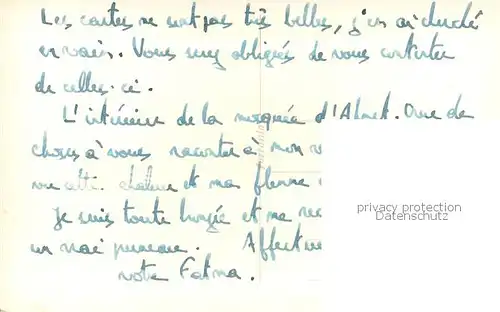 Les cartes ne sont pas très belles, j'en ai cherché
en vain. Vous serez obligés de vous contenter
de celles-ci.
L'intérieur de la mosquée d'Ahmet. Que de
choses à vous raconter à mon
cette chaleur et ma flemme
Je suis toute bronzée et me
un vrai pruneau. Affect
votre Fatma.
privacy protection
Datenschutz